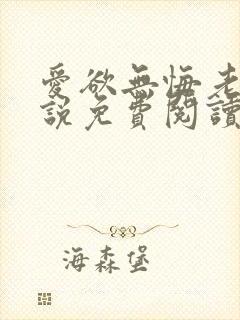 愛欲無悔老
說免費閱讀
海森堡